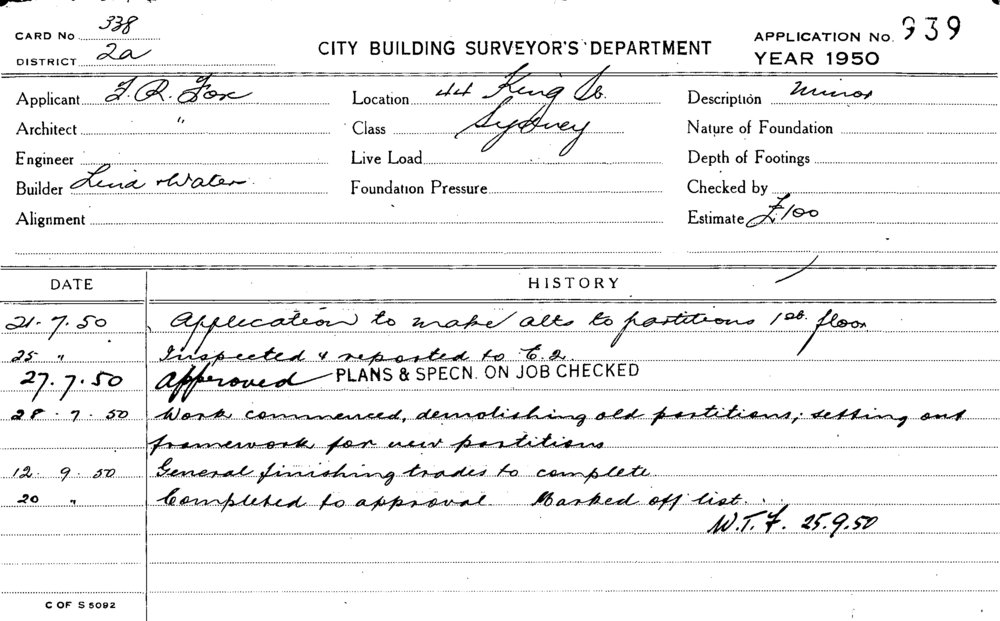 CARD No 338
DISTRICT 2a
CITY BUILDING SURVEYOR'S DEPARTMENT
APPLICATION No. 939
YEAR 1950
Applicant F. R. Fox
Location 44 King St.
Description Minor
Architect "
Class Sydney
Nature of Foundation
Engineer
Live Load
Depth of Footings
Builder Lend & Water
Foundation Pressure
Checked by
Alignment
Estimate £100
DATE HISTORY
21.7.50 Application to make alts to partitions 1st. floor
25 " Inspected & reported to C.2.
27.7.50 Approved PLANS & SPECN. ON JOB CHECKED
28.7.50 Work commenced, demolishing old partitions; setting out
framework for new partitions
12.9.50 General finishing trades to complete
20 " Completed to approval. Marked off list...
W.T.F. 25.9.50
C OF S 5092